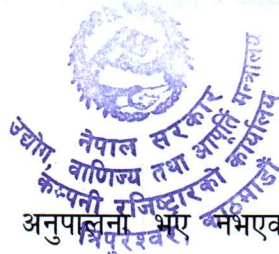 नेपाल सरकार
उद्योग, वाणिज्य तथा आपूर्ति मन्त्रालय
कम्पनी रजिष्ट्रारको कार्यालय
त्रिपुरेश्वर, काठमाडौं
अनुपालना भए नभएक